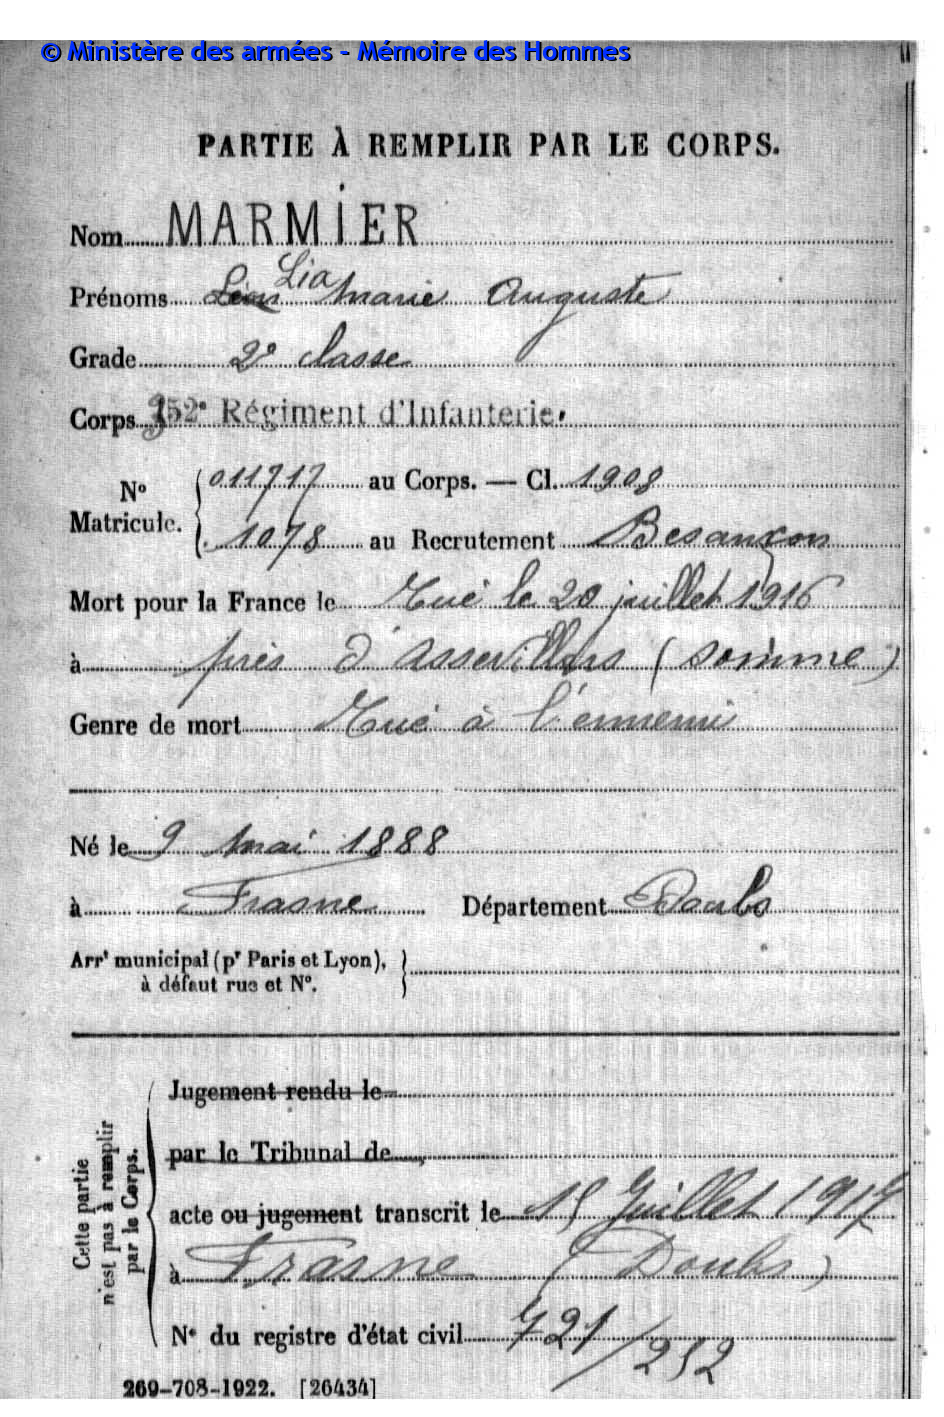 © Ministère des armées - Mémoire des Hommes
PARTIE À REMPLIR PAR LE CORPS.
Nom MARMIER
Prénoms Léon Lia Marie Auguste
Grade 2e classe
Corps 352e Régiment d'Infanterie.
No Matricule. 011717 au Corps. — Cl. 1908
1078 au Recrutement Besançon
Mort pour la France le Tué le 20 juillet 1916
à près d'Assevillers (Somme)
Genre de mort Tué à l'ennemi
Né le 9 mai 1888
à Frasne Département Doubs
Arrt municipal (pr Paris et Lyon),
à défaut rue et No.
Cette partie
n'est pas à remplir
par le Corps.
Jugement rendu le
par le Tribunal de
acte ou jugement transcrit le 15 Juillet 1917
à Frasne (Doubs)
No du registre d'état civil 721/252
269-708-1922. [26434]